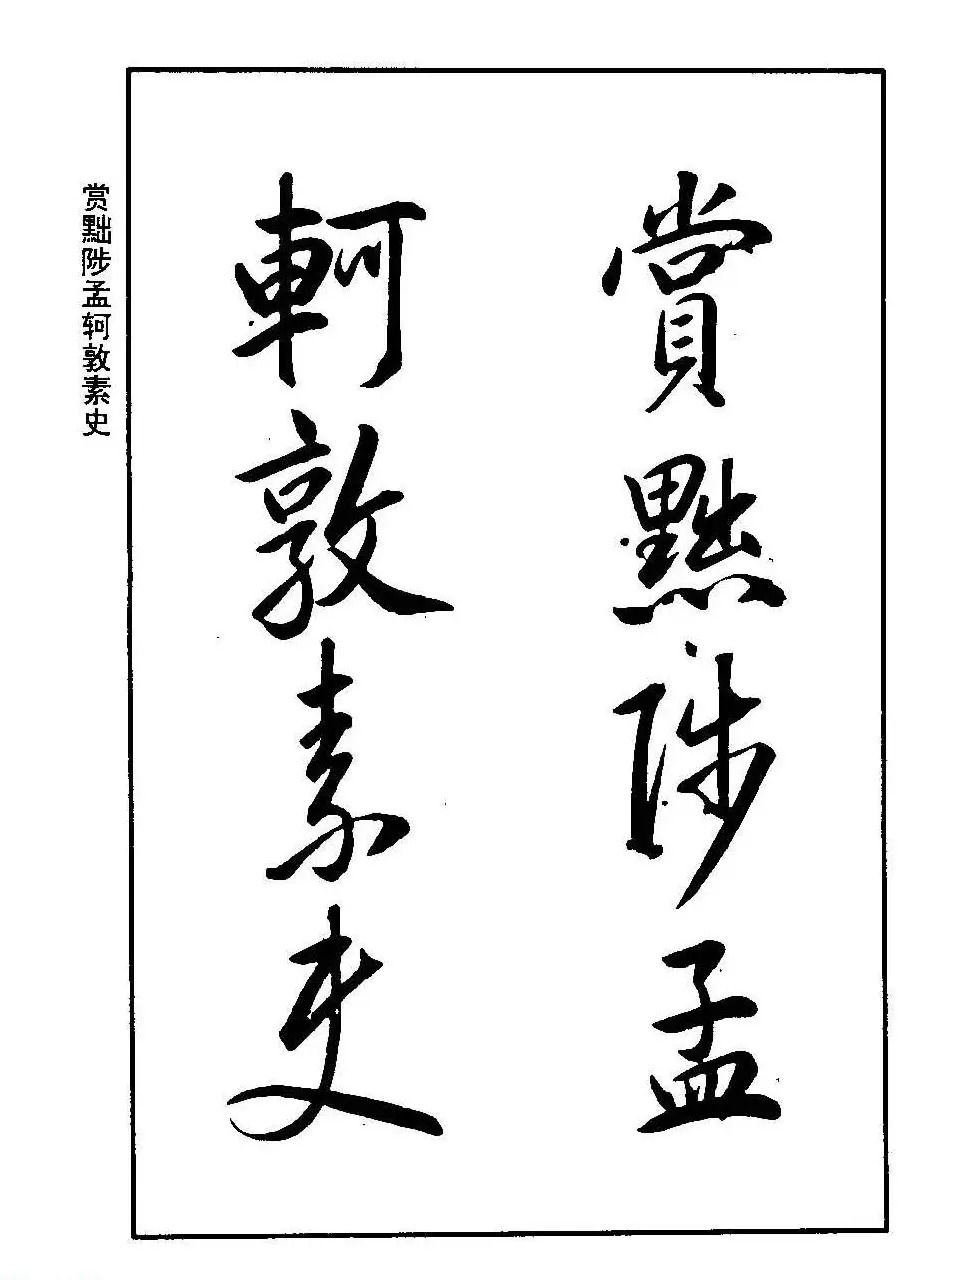 賞黜陟孟
軻敦素史
赏黜陟孟轲敦素史